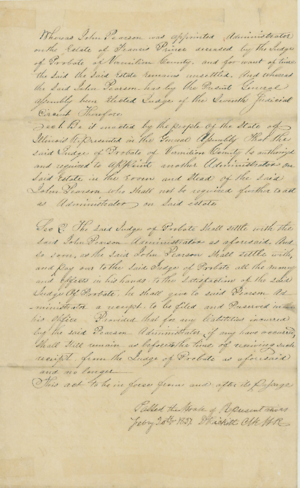 Whereas John Pearson was appointed Administrator
on the Estate of Francis Prince deceased by the Judge
of Probate of Vermilion County, and for want of time
the said the said Estate remains unsettled. And whereas
the said John Pearson has by the Present General
Assembly been Elected Judge of the Seventh Judicial
Circuit Therefore
Sec 1 Be it enacted by the people of the State of
Illinois Represented in the General Assembly That the
said Judge of Probate of Vermilion County is authorized
and required to appoint another Administrator on
said Estate in the room and Stead of the said
John Pearson who shall not be required further to act
as Administrator on said Estate
Sec 2 The said Judge of Probate shall settle with the
said John Pearson Administrator as aforesaid. And
so soon as the said John Pearson shall settle with,
and pay over to the said Judge of Probate all the money
and effects in his hands to the satisfaction of the said
Judge of Probate, he shall give to said Pearson
Administrator a receipt to be filed and Preserved in
his Office. Provided that for any
by the said Pearson Administrator if any have occurred
shall still remain as before the time of receiving such
receipt from the Judge of Probate as aforesaid
and no longer
This act to be in force from and after its passage
Passed the House of Representatives
Feby 20th 1837